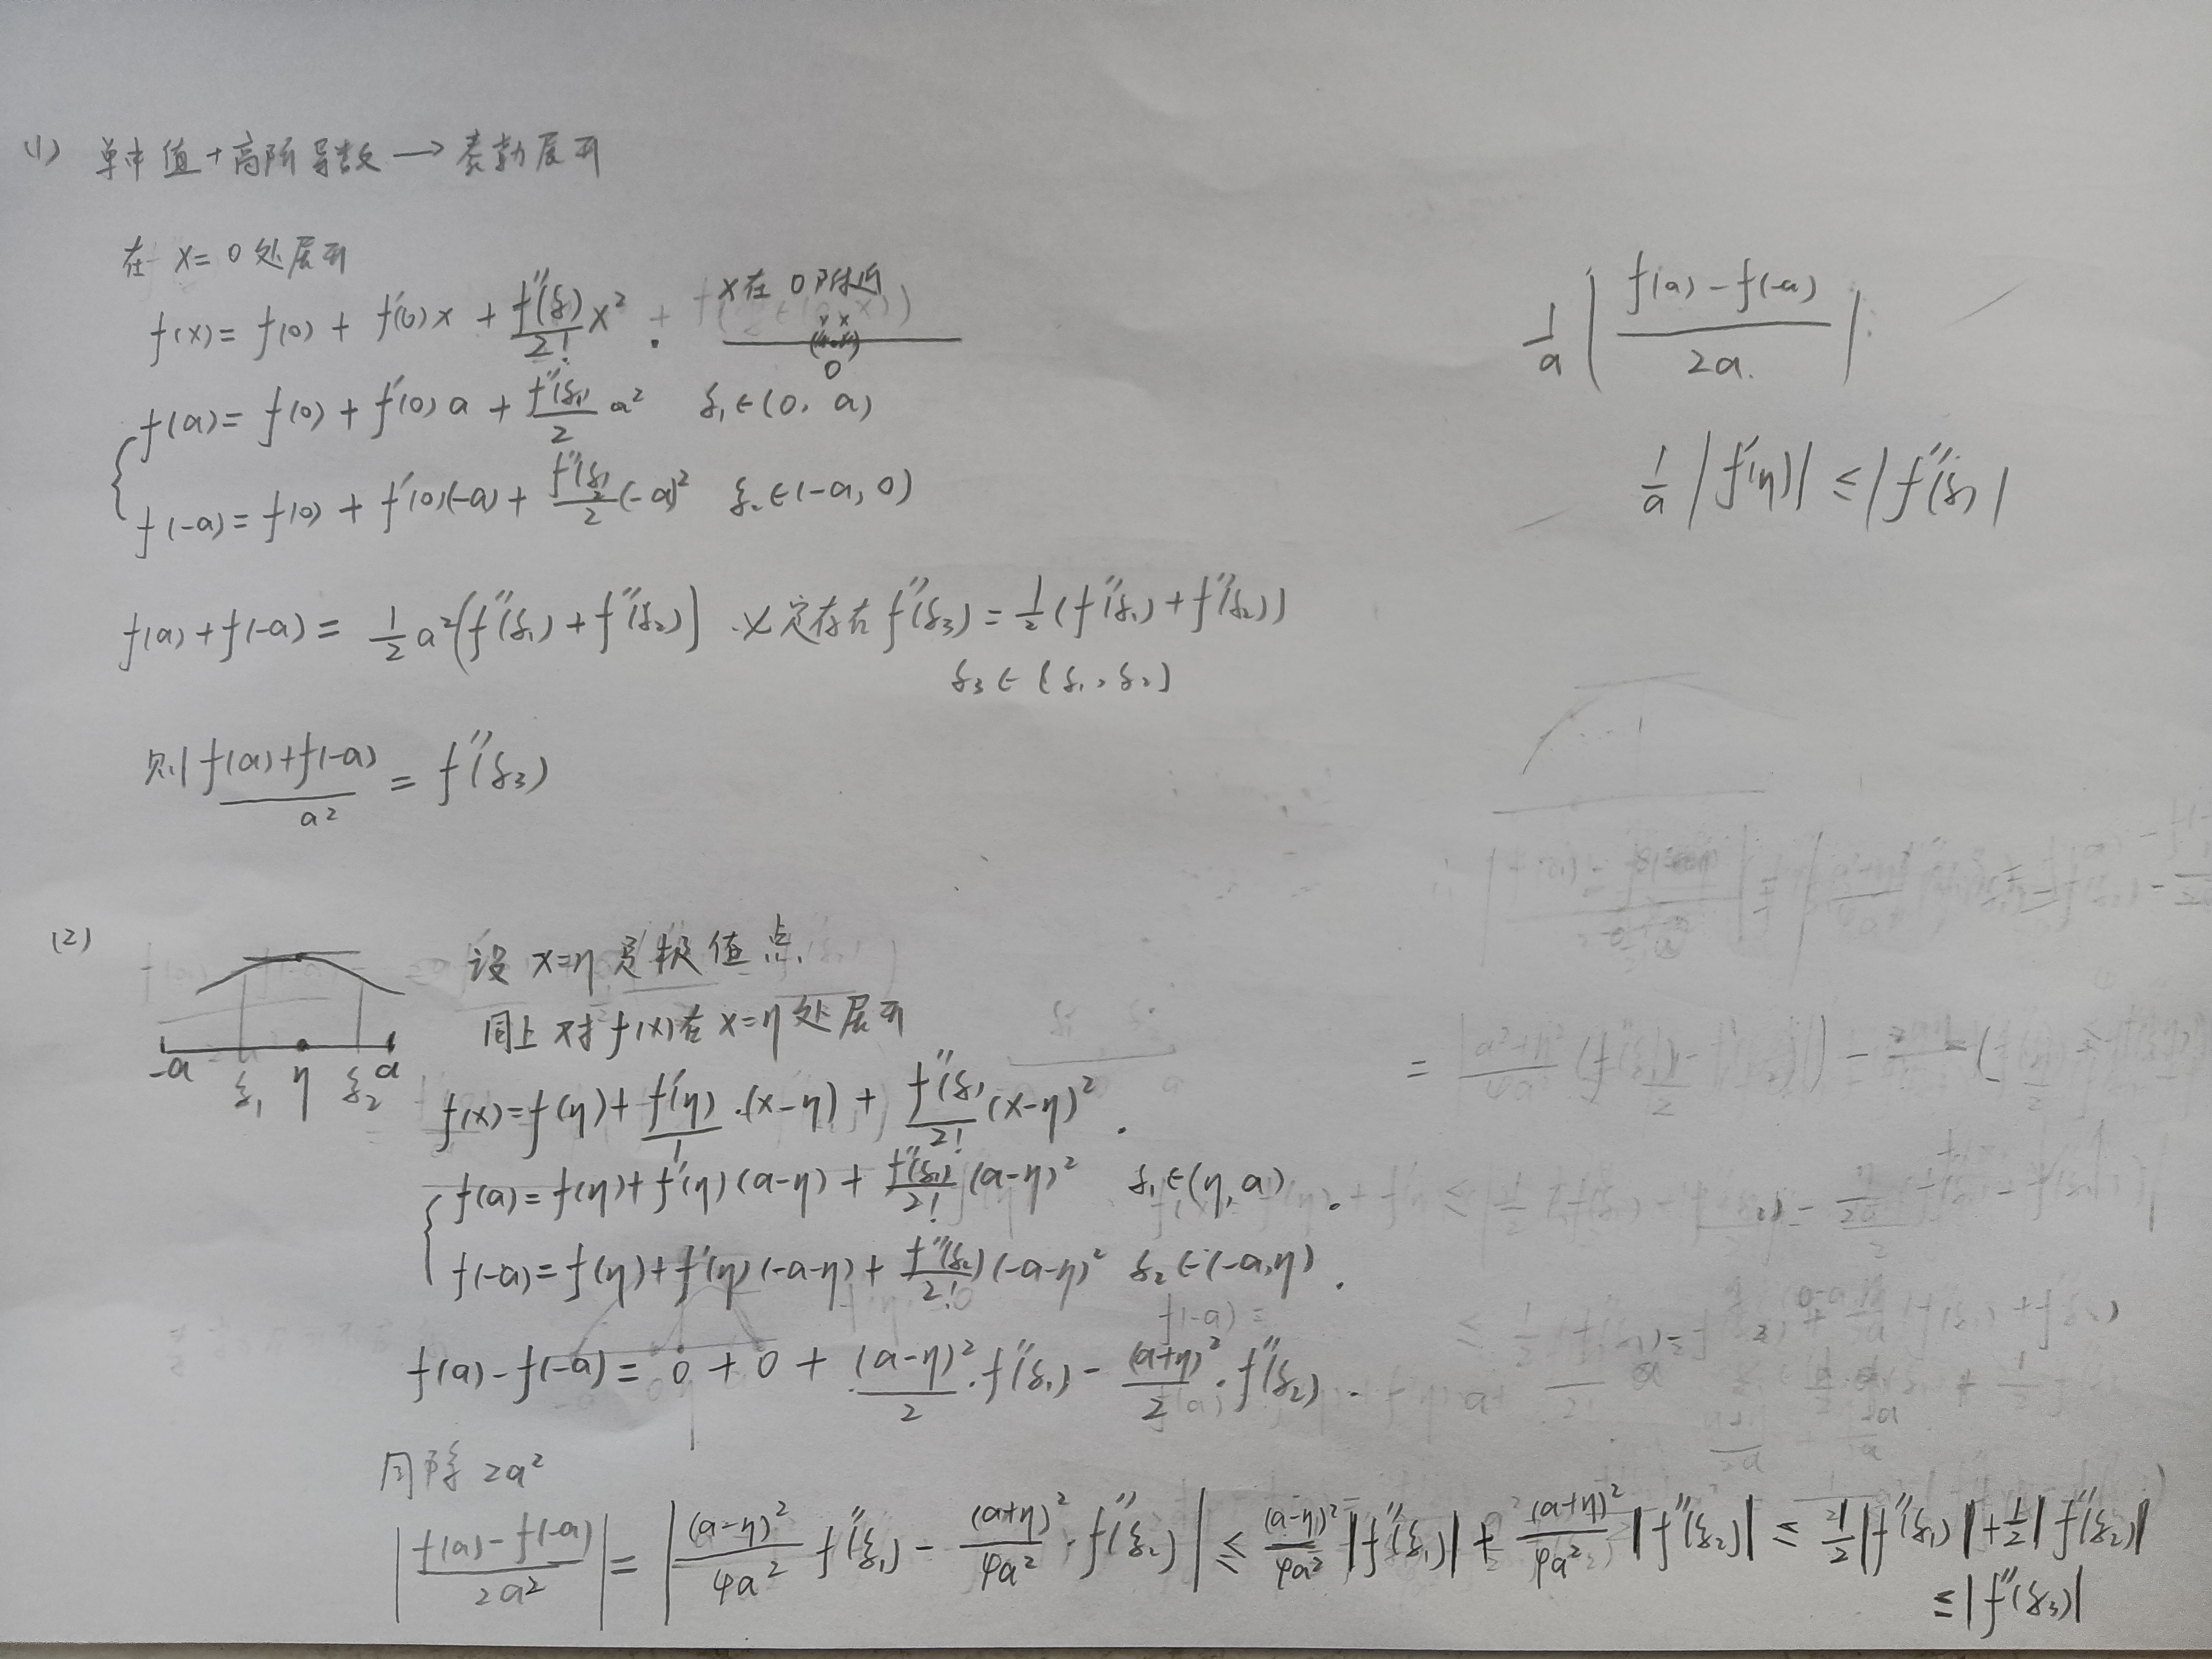 (1) 单中值+高阶导数→泰勒展开
在 x=0 处展开
f(x)= f(0) + f'(0)x + f''(ξ)/2! x² . x在 0 附近
0
f(a)= f(0) + f'(0)a + f''(ξ₁)/2 a² ξ₁∈(0, a)
f(-a)= f(0) + f'(0)(-a) + f''(ξ₂)/2 (-a)² ξ₂∈(-a, 0)
f(a)+f(-a)= 1/2 a²[f''(ξ₁)+f''(ξ₂)] 必定存在 f''(ξ₃)= 1/2 (f''(ξ₁)+f''(ξ₂))
ξ₃∈[ξ₁, ξ₂]
则 f(a)+f(-a) / a² = f''(ξ₃)
1/a | f(a)-f(-a) / 2a. |
1/a |f'(η)| ≤ |f''(ξ)|
(2) 设 x=η 是极值点.
同上 对 f(x)在 x=η 处展开
-a ξ₁ η ξ₂ a
f(x)=f(η)+ f'(η)/1 ·(x-η) + f''(ξ)/2! (x-η)² .
f(a)= f(η)+f'(η)(a-η)+ f''(ξ₁)/2! (a-η)² ξ₁∈(η, a) .
f(-a)= f(η)+f'(η)(-a-η)+ f''(ξ₂)/2! (-a-η)² ξ₂∈(-a,η) .
f(a)-f(-a)= 0 + 0 + (a-η)²/2 ·f''(ξ₁)- (a+η)²/2 ·f''(ξ₂) .
同除 2a²
| f(a)-f(-a) / 2a² | = | (a-η)²/4a² f''(ξ₁)- (a+η)²/4a² ·f''(ξ₂) | ≤ (a-η)²/4a² |f''(ξ₁)| + (a+η)²/4a² |f''(ξ₂)| ≤ 1/2 |f''(ξ₁)|+ 1/2 |f''(ξ₂)|
≤ |f''(ξ₃)|